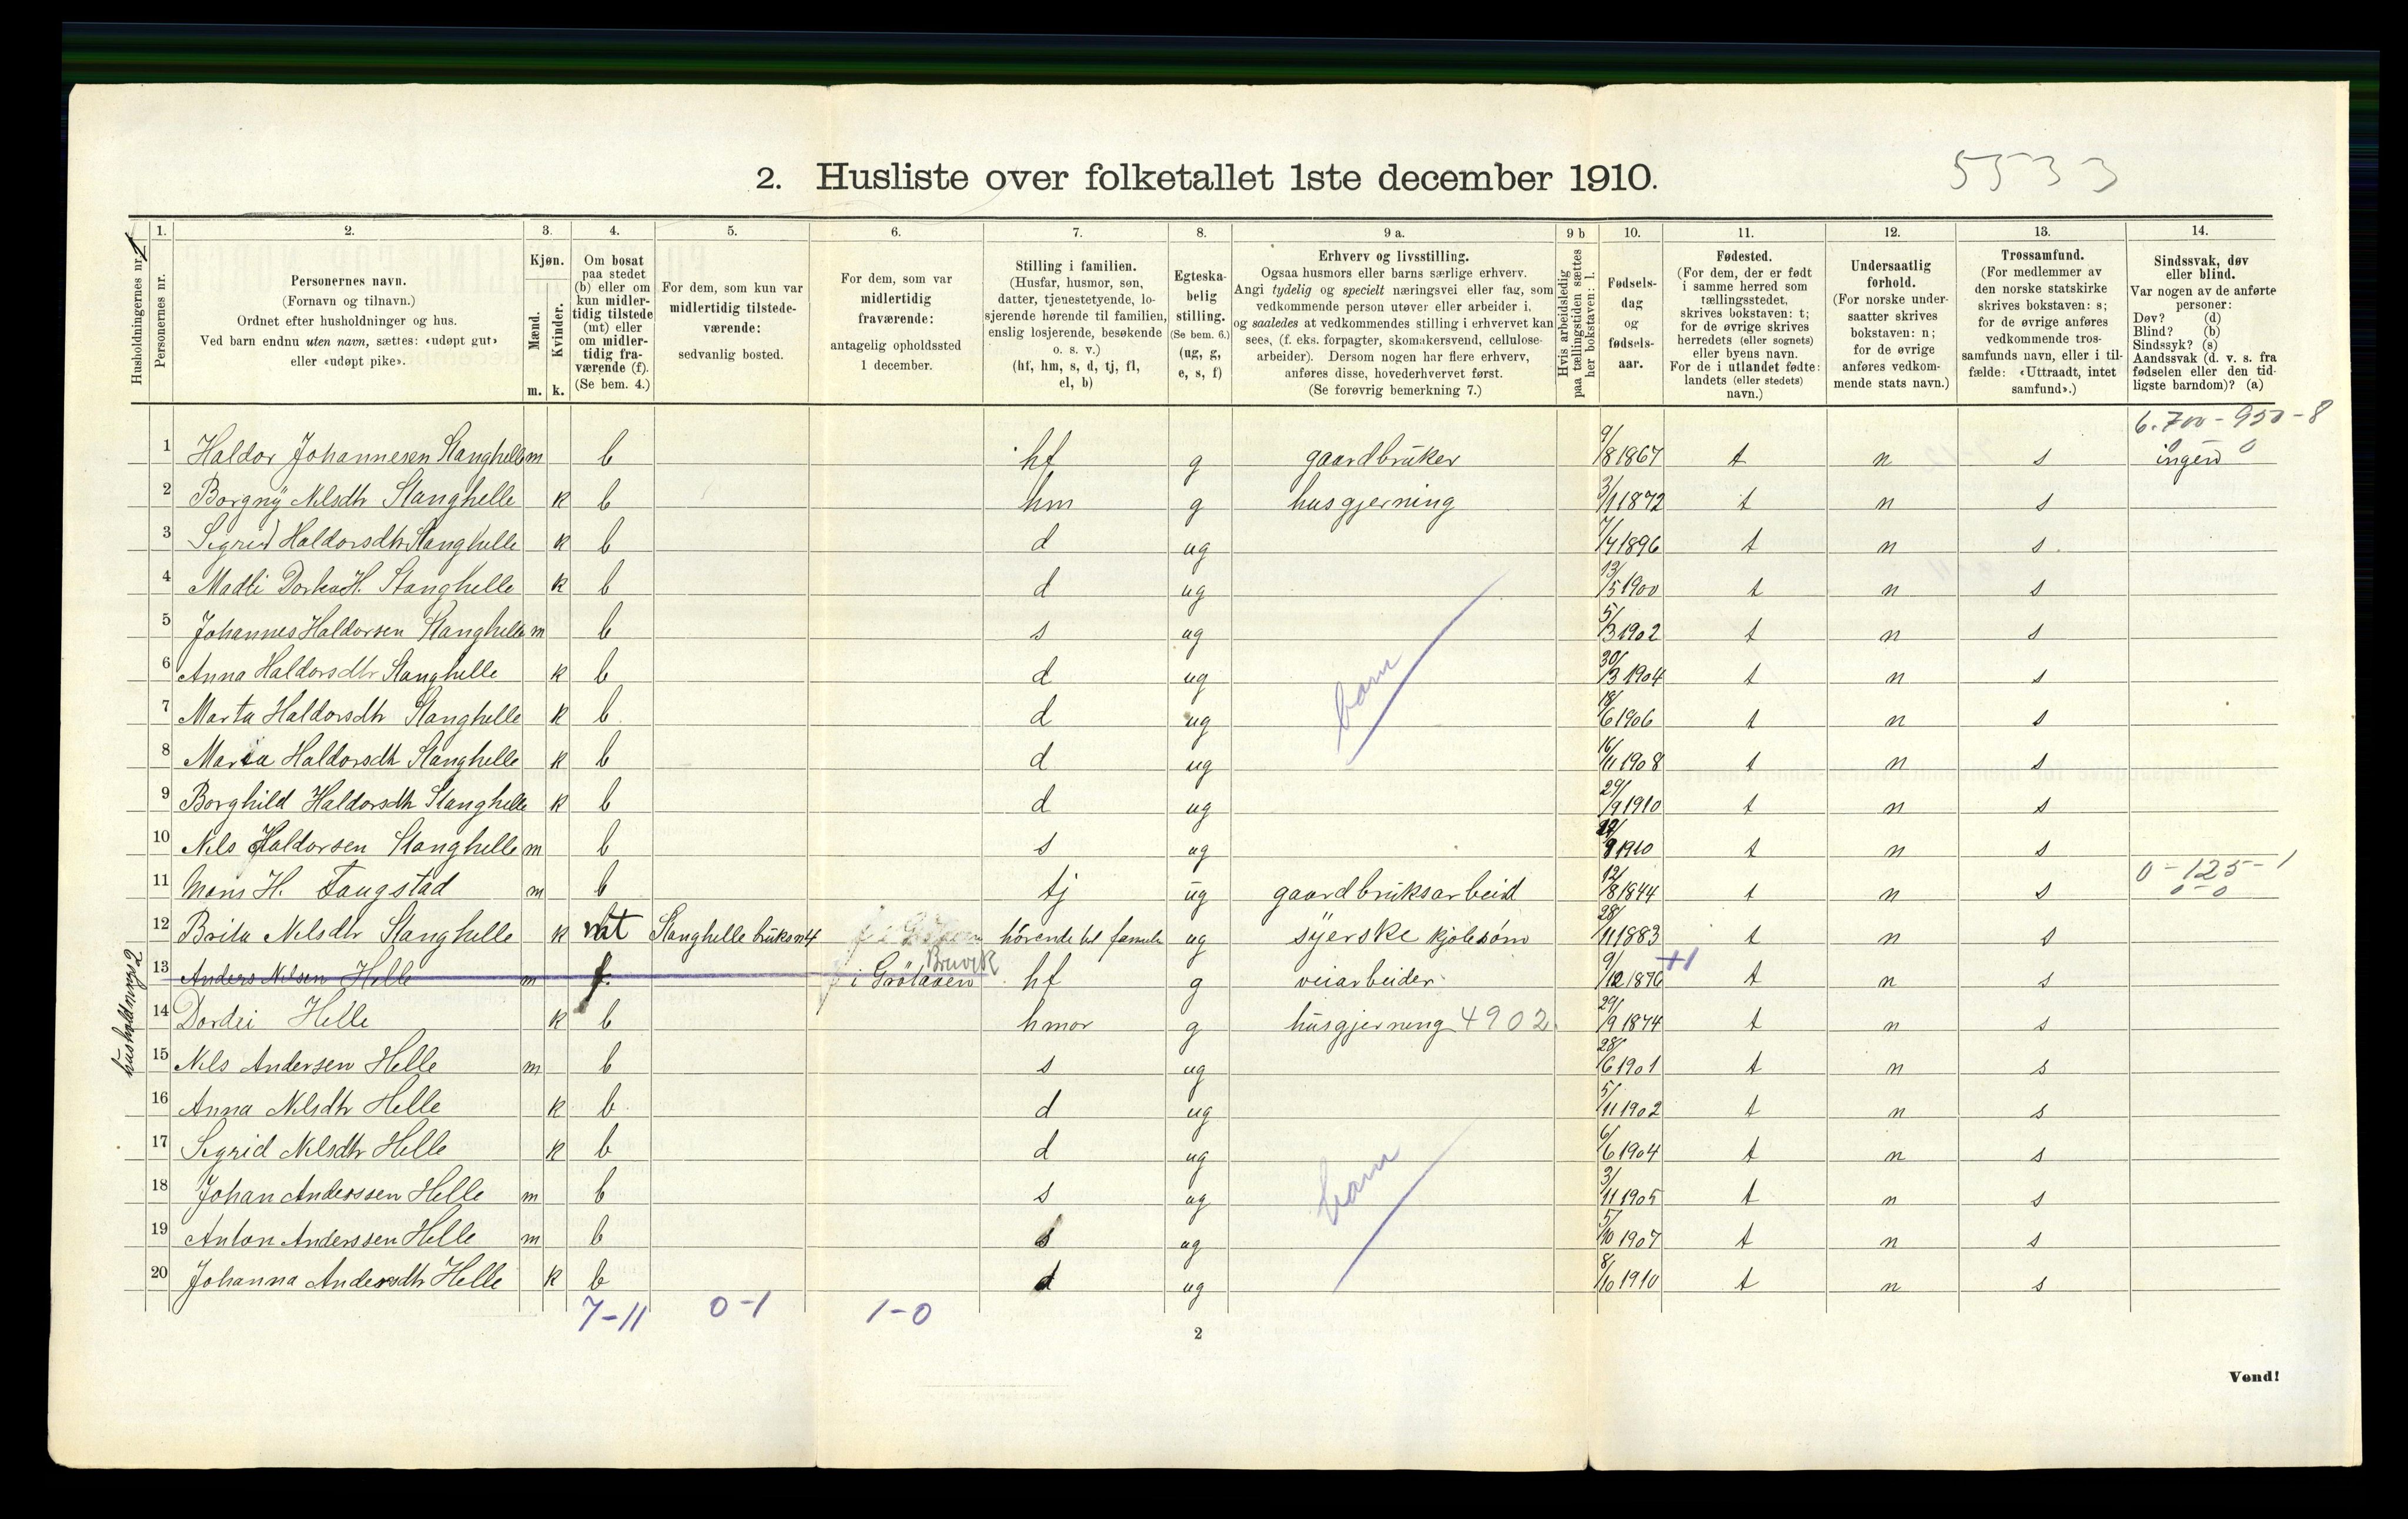 2. Husliste over folketallet 1ste december 1910.
5533
1. 2. 3. 4. 5. 6. 7. 8. 9 a. 9 b 10. 11. 12. 13. 14.
Husholdningernes nr.
Personernes nr.
Personernes navn.
(Fornavn og tilnavn.)
Ordnet efter husholdninger og hus.
Ved barn endnu uten navn, sættes: «udøpt gut»
eller «udøpt pike».
Kjøn.
Mænd.
Kvinder.
m. k.
Om bosat
paa stedet
(b) eller om
kun midler-
tidig tilstede
(mt) eller
om midler-
tidig fra-
værende (f).
(Se bem. 4.)
For dem, som kun var
midlertidig tilstede-
værende:
sedvanlig bosted.
For dem, som var
midlertidig
fraværende:
antagelig opholdssted
1 december.
Stilling i familien.
(Husfar, husmor, søn,
datter, tjenestetyende, lo-
sjerende hørende til familien,
enslig losjerende, besøkende
o. s. v.)
(hf, hm, s, d, tj, fl,
el, b)
Egteska-
belig
stilling.
(Se bem. 6.)
(ug, g,
e, s, f)
Erhverv og livsstilling.
Ogsaa husmors eller barns særlige erhverv.
Angi tydelig og specielt næringsvei eller fag, som
vedkommende person utøver eller arbeider i,
og saaledes at vedkommendes stilling i erhvervet kan
sees, (f. eks. forpagter, skomakersvend, cellulose-
arbeider). Dersom nogen har flere erhverv,
anføres disse, hovederhvervet først.
(Se forøvrig bemerkning 7.)
Hvis arbeidsledig
paa tællingstiden sættes
her bokstaven: l.
Fødsels-
dag
og
fødsels-
aar.
Fødested.
(For dem, der er født
i samme herred som
tællingsstedet,
skrives bokstaven: t;
for de øvrige skrives
herredets (eller sognets)
eller byens navn.
For de i utlandet fødte:
landets (eller stedets)
navn.)
Undersaatlig
forhold.
(For norske under-
saatter skrives
bokstaven: n;
for de øvrige
anføres vedkom-
mende stats navn.)
Trossamfund.
(For medlemmer av
den norske statskirke
skrives bokstaven: s;
for de øvrige anføres
vedkommende tros-
samfunds navn, eller i til-
fælde: «Uttraadt, intet
samfund».)
Sindssvak, døv
eller blind.
Var nogen av de anførte
personer:
Døv? (d)
Blind? (b)
Sindssyk? (s)
Aandssvak (d. v. s. fra
fødselen eller den tid-
ligste barndom)? (a)
6.700-950-8
1 Haldor Johannesen Stanghelle m b hf g gaardbruker 9/8 1867 t n s ingen 0
2 Borgny Nilsdtr Stanghelle k b hm g husgjerning 3/1 1872 t n s
3 Sigrid Haldorsdtr Stanghelle k b d ug 7/4 1896 t n s
4 Madli Dorthea H. Stanghelle k b d ug 13/5 1900 t n s
5 Johannes Haldorsen Stanghelle m b s ug 5/3 1902 t n s
6 Anna Haldorsdtr Stanghelle k b d ug barn 30/3 1904 t n s
7 Marta Haldorsdtr Stanghelle k b d ug 18/6 1906 t n s
8 Maria Haldorsdtr Stanghelle k b d ug 16/11 1908 t n s
9 Borghild Haldorsdtr Stanghelle k b d ug 29/9 1910 t n s
10 Nils Haldorsen Stanghelle m b s ug 29/9 1910 t n s
11 Mons H. Fangstad m b tj ug gaardbruksarbeid 12/8 1844 t n s 0-125-1
0-0
12 Brita Nilsdtr Stanghelle k mt Stanghelle bruksn 4 hörende til familie ug syerske kjolesöm 28/11 1883 t n s
husholdnings 2
Bruvik
13 Anders Nilsen Helle m f. i Grötaven hf g veiarbeider 9/12 1876 +1 t n s
14 Dordei Helle k b hmor g husgjerning 4902 29/9 1874 t n s
15 Nils Andersen Helle m b s ug 28/6 1901 t n s
16 Anna Nilsdtr Helle k b d ug 5/11 1902 t n s
17 Sigrid Nilsdtr Helle k b d ug 6/6 1904 t n s
18 Johan Anderssen Helle m b s ug barn 3/11 1905 t n s
19 Anton Anderssen Helle m b s ug 5/10 1907 t n s
20 Johanna Andersdtr Helle k b d ug 8/10 1910 t n s
7-11 0-1 1-0
2
Vend!